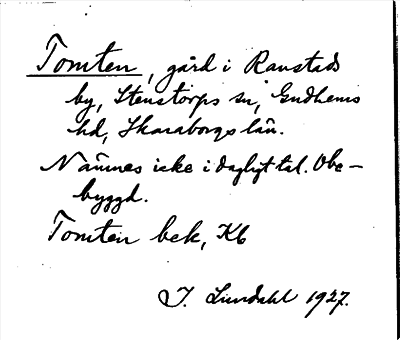 Tomten, gård i Ranstads
by, Stenstorps sn, Gudhems
hd, Skaraborgs län.
Nämnes icke i dagligt tal. Obe-
byggd.
Tomten bek, Kb
J. Lundahl 1927.